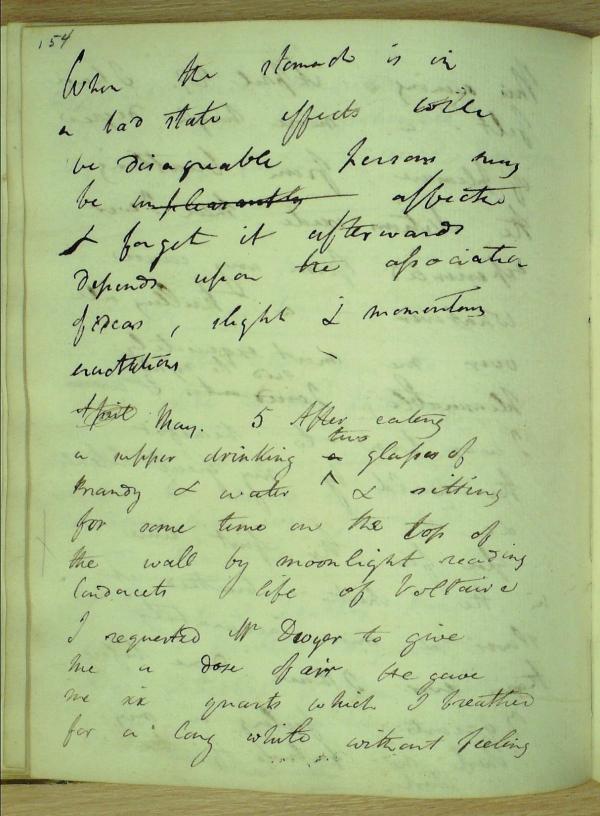 154
When the stomach is in
a bad state effects will
be disagreable Persons may
be unpleasantly affected
& forget it afterwards
depends upon the association
of ideas, slight & momentary
April May. 5 After eating
a supper drinking a two glasses of
Brandy & water & sitting
for some time on the top of
the wall by moonlight reading
Condorcets life of Voltaire
I requested Mr Dwyer to give
me a dose of air He gave
me six quarts which I breathed
for a long while without feeling